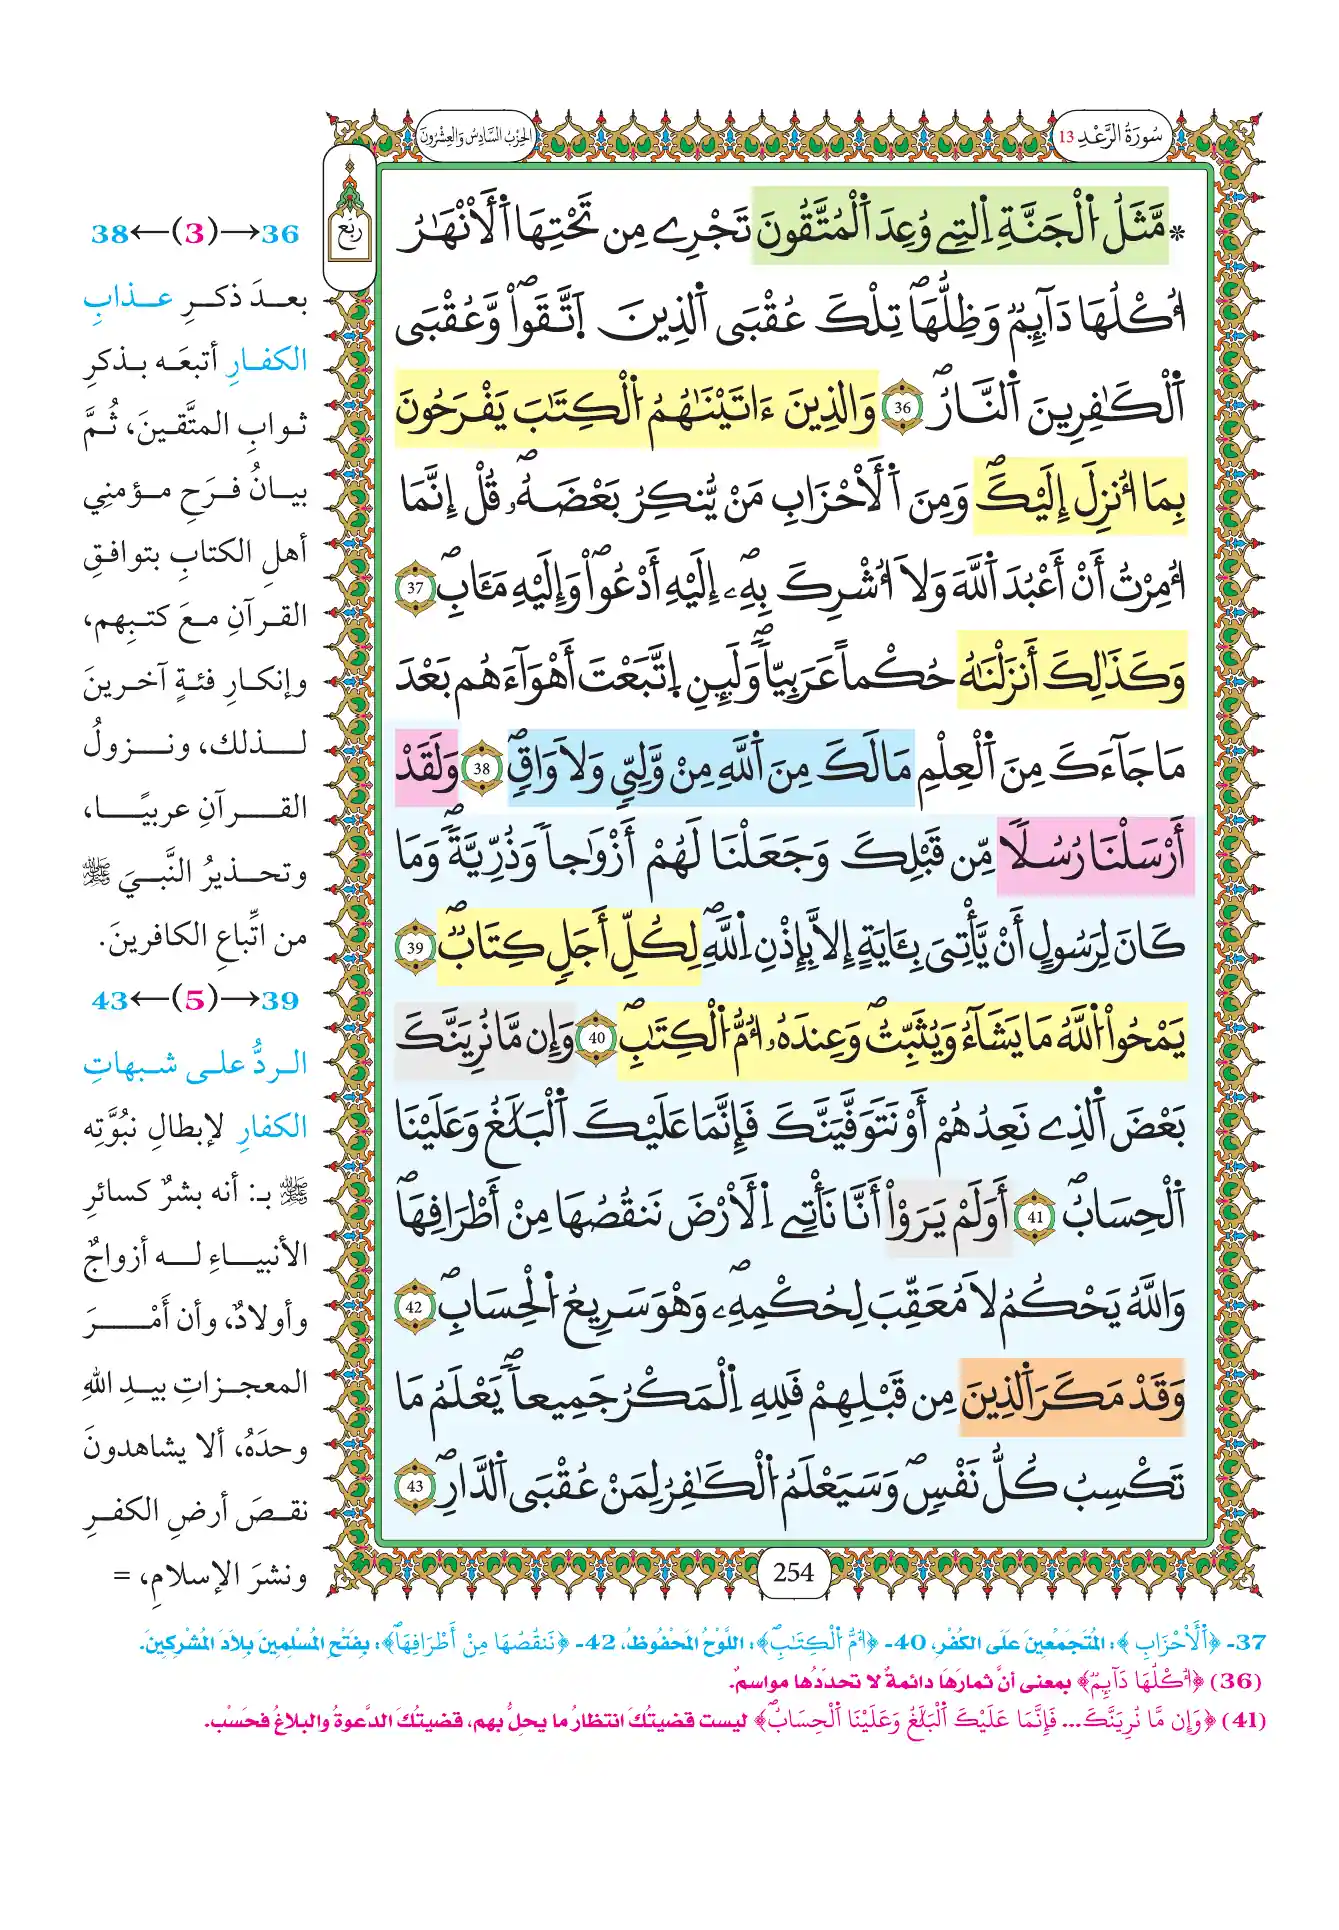 سُورَةُ الرَّعْدِ 13
الحِزْبُ السَّادِسُ وَالعِشْرُونَ
رُبْع
* مَّثَلُ اُ۬لْجَنَّةِ اِ۬لتِے وُعِدَ اَ۬لْمُتَّقُونَ تَجْرِے مِن تَحْتِهَا اَ۬لَانْهَٰرُ
أُكْلُهَا دَآئِمٞ وَظِلُّهَاۖ تِلْكَ عُقْبَي اَ۬لذِينَ اَ۪تَّقَواْۖ وَّعُقْبَي
اَ۬لْكَٰفِرِينَ اَ۬لنَّارُۖ 36 وَالذِينَ ءَاتَيْنَٰهُمُ اُ۬لْكِتَٰبَ يَفْرَحُونَ
بِمَا أُنزِلَ إِلَيْكَۖ وَمِنَ اَ۬لَاحْزَابِ مَنْ يُّنكِرُ بَعْضَهُۥۖ قُلِ اِنَّمَا
أُمِرْتُ أَنَ اَعْبُدَ اَ۬للَّهَ وَلَا أُشْرِكَ بِهِۦۖ إِلَيْهِ أَدْعُواْۖ وَإِلَيْهِ مَـَٔابِۖ 37
وَكَذَٰلِكَ أَنزَلْنَٰهُ حُكْماً عَرَبِيّاٗۖ وَلَئِنِ اِ۪تَّبَعْتَ أَهْوَآءَهُم بَعْدَ
مَا جَآءَكَ مِنَ اَ۬لْعِلْمِ مَا لَكَ مِنَ اَ۬للَّهِ مِنْ وَّلِيّٖ وَلَا وَاقٖۖ 38 وَلَقَدَ
اَرْسَلْنَا رُسُلاٗ مِّن قَبْلِكَ وَجَعَلْنَا لَهُمُۥٓ أَزْوَٰجاٗ وَذُرِّيَّةٗۖ وَمَا
كَانَ لِرَسُولٍ اَنْ يَّأْتِيَ بِـَٔايَةٍ اِلَّا بِإِذْنِ اِ۬للَّهِۖ لِكُلِّ أَجَلٖ كِتَابٞۖ 39
يَمْحُواْ اُ۬للَّهُ مَا يَشَآءُ وَيُثَبِّتُۖ وَعِندَهُۥ أُمُّ اُ۬لْكِتَٰبِۖ 40 وَإِن مَّا نُرِيَنَّكَ
بَعْضَ اَ۬لذِے نَعِدُهُمُۥٓ أَوْ نَتَوَفَّيَنَّكَ فَإِنَّمَا عَلَيْكَ اَ۬لْبَلَٰغُ وَعَلَيْنَا
اَ۬لْحِسَابُۖ 41 أَوَلَمْ يَرَوَاْ اَنَّا نَأْتِے اِ۬لَارْضَ نَنقُصُهَا مِنَ اَطْرَافِهَاۖ
وَاللَّهُ يَحْكُمُ لَا مُعَقِّبَ لِحُكْمِهِۦۖ وَهُوَ سَرِيعُ اُ۬لْحِسَابِۖ 42
وَقَدْ مَكَرَ اَ۬لذِينَ مِن قَبْلِهِمْ فَلِلهِ اِ۬لْمَكْرُ جَمِيعاٗۖ يَعْلَمُ مَا
تَكْسِبُ كُلُّ نَفْسٖۖ وَسَيَعْلَمُ اُ۬لْكَٰفِرُ لِمَنْ عُقْبَي اَ۬لدَّارِۖ 43
254
36→(3)←38
بعدَ ذكرِ عذابِ
الكفارِ أتبعَه بذكرِ
ثوابِ المتَّقينَ، ثُمَّ
بيانُ فرَحِ مؤمنِي
أهلِ الكتابِ بتوافقِ
القرآنِ معَ كتبِهم،
وإنكارِ فئةٍ آخرينَ
لذلك، ونزولُ
القرآنِ عربيًا،
وتحذيرُ النَّبيَ ﷺ
من اتِّباعِ الكافرينَ.
39→(5)←43
الردُّ على شبهاتِ
الكفارِ لإبطالِ نبُوَّتِه
ﷺ بـ: أنه بشرٌ كسائرِ
الأنبياءِ له أزواجٌ
وأولادٌ، وأن أَمْرَ
المعجزاتِ بيدِ اللهِ
وحدَهُ، ألا يشاهدونَ
نقصَ أرضِ الكفرِ
ونشرَ الإسلامِ، =
37- ﴿اَ۬لَاحْزَابِ﴾: المُتَجَمِّعِينَ عَلَى الكُفْرِ، 40- ﴿أُمُّ اُ۬لْكِتَٰبِۖ﴾: اللَّوْحُ المَحْفُوظُ، 42- ﴿نَنقُصُهَا مِنَ اَطْرَافِهَاۖ﴾: بِفَتْحِ المُسْلِمِينَ بِلَادَ المُشْرِكِينَ.
(36) ﴿أُكْلُهَا دَآئِمٞ﴾ بمعنى أنَّ ثمارَهَا دائمةٌ لا تحدّدُها مواسمٌ.
(41) ﴿وَإِن مَّا نُرِيَنَّكَ... فَإِنَّمَا عَلَيْكَ اَ۬لْبَلَٰغُ وَعَلَيْنَا اَ۬لْحِسَابُۖ﴾ ليست قضيتُكَ انتظارُ ما يحلُّ بهم، قضيتُكَ الدَّعوةُ والبلاغُ فحَسْب.